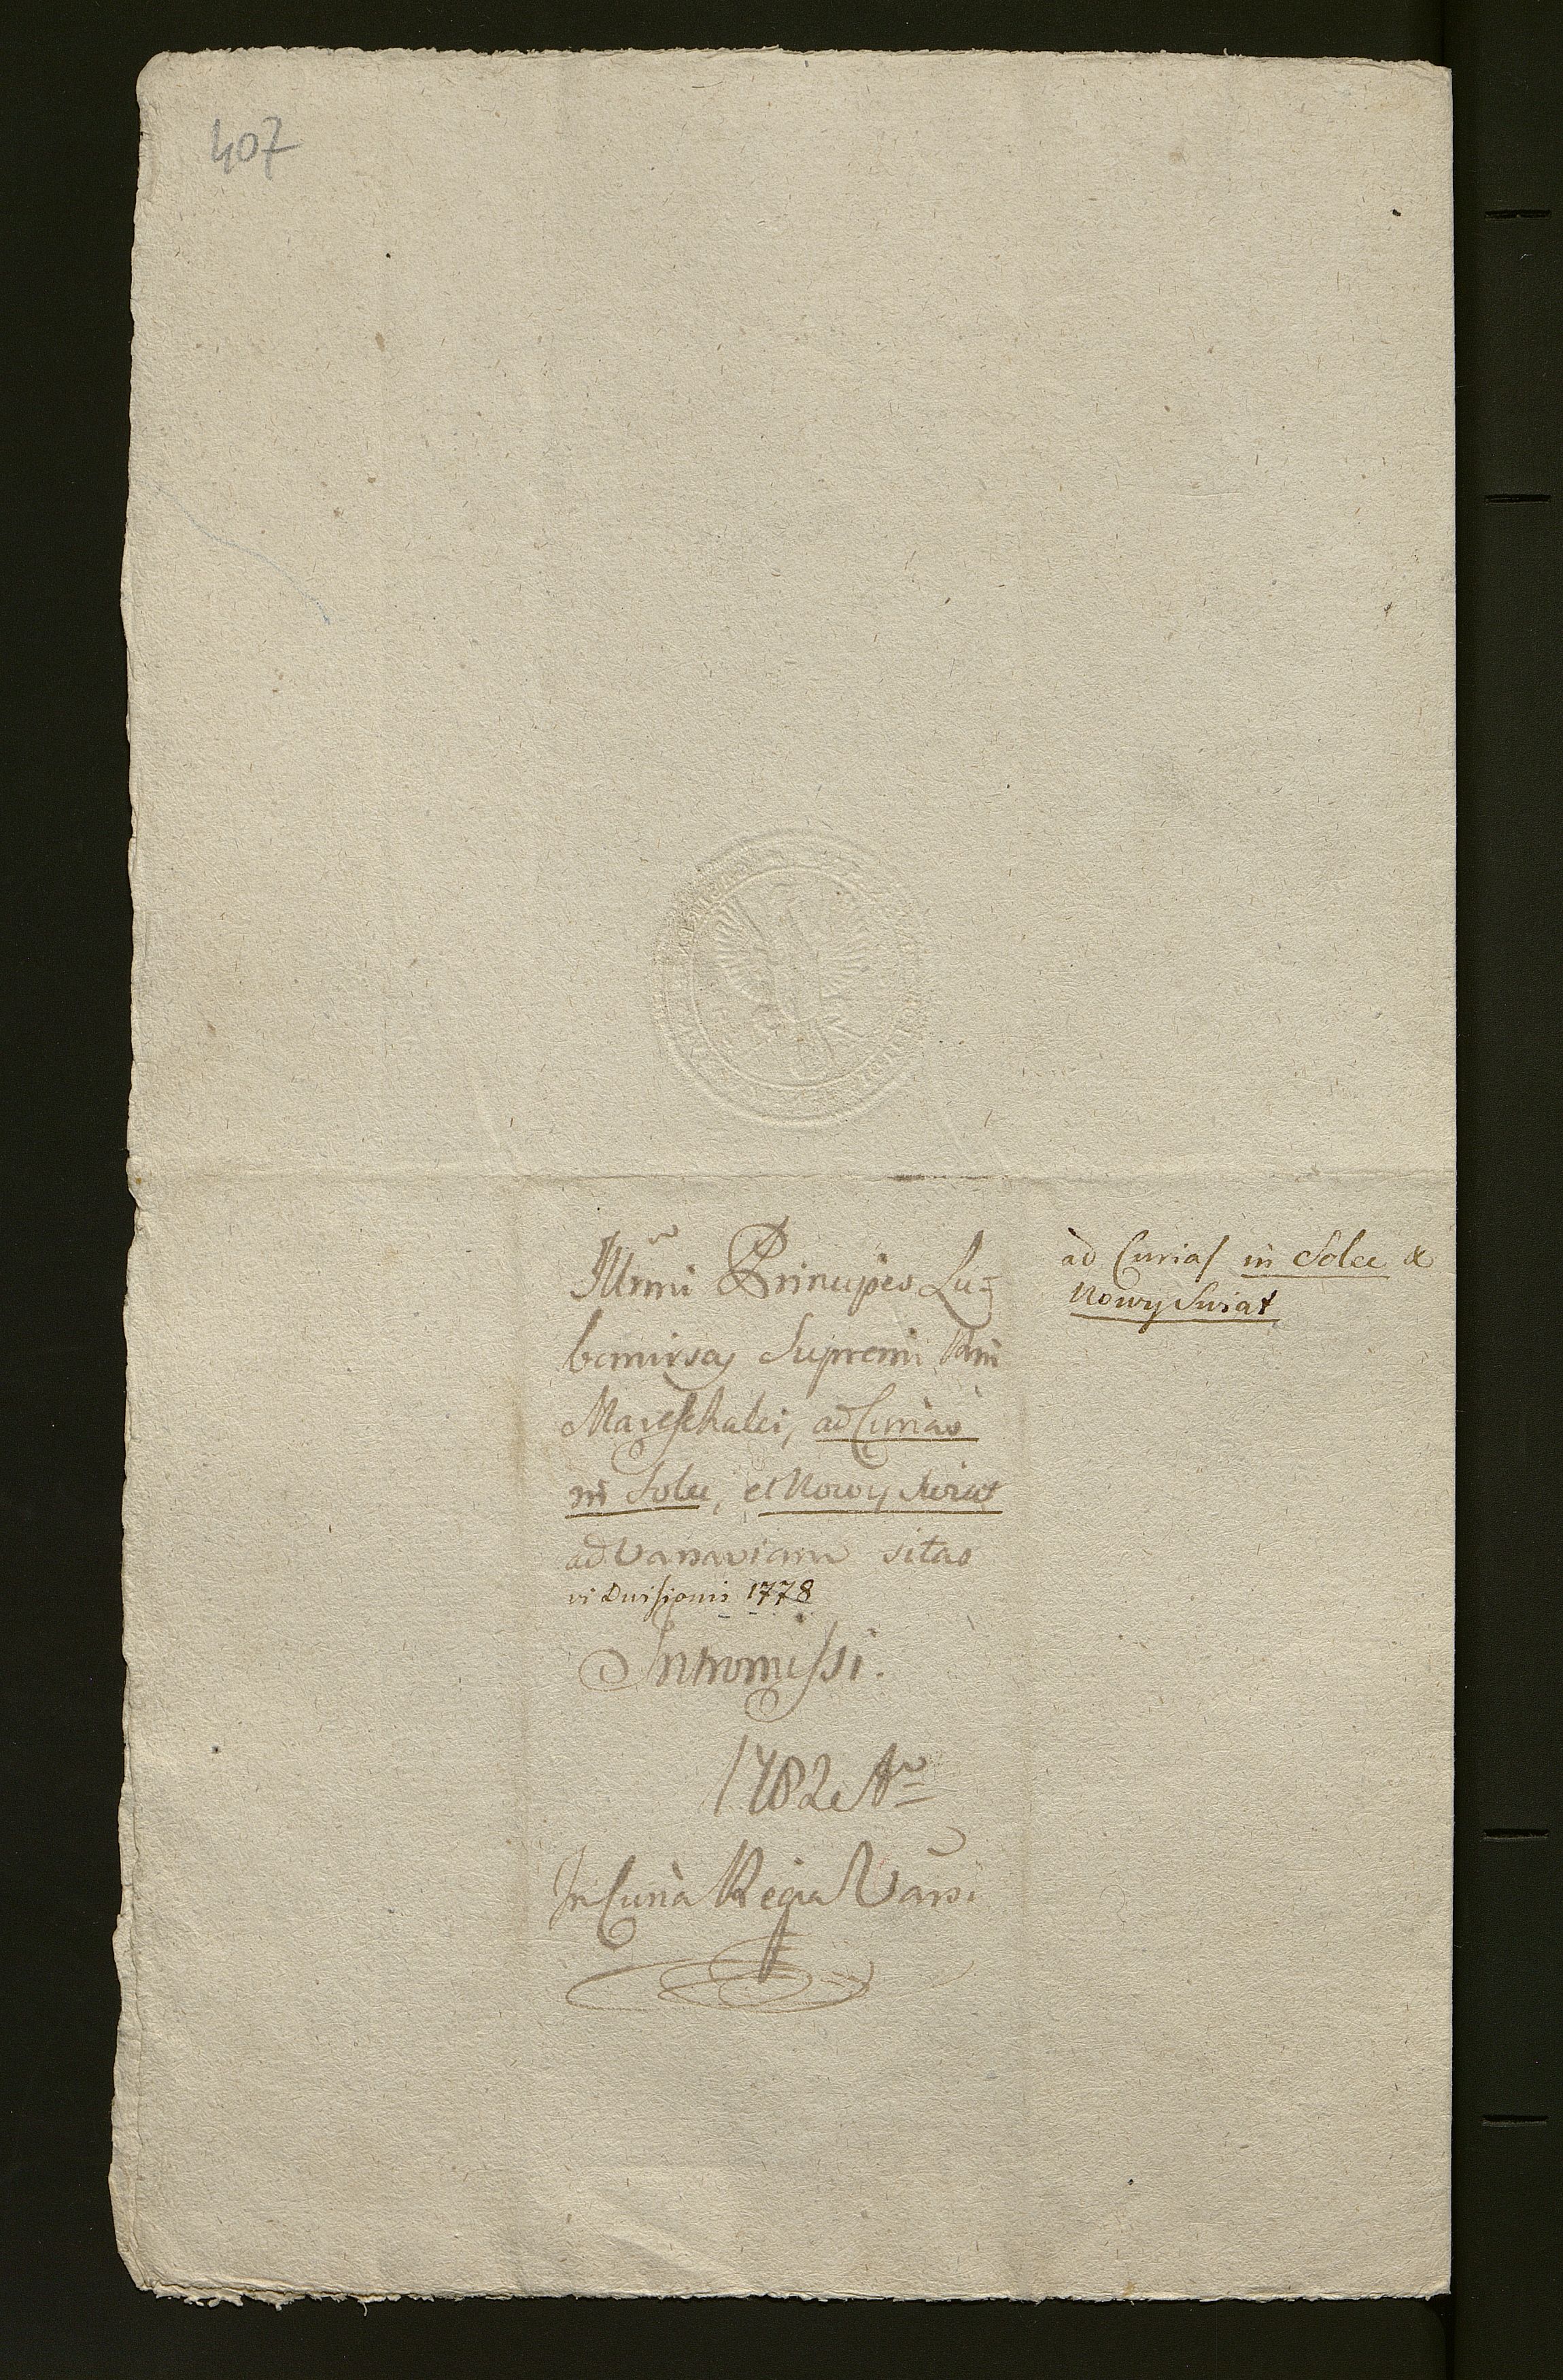 407
Illmi Principes Lu=
bomirscy Supremi Rni
Mareschalci, ad Curias
in Solec, et Nowy Swiat
ad Varsaviam sitas
vi Divisionis 1778
Intromissi.
1782 Ao
In Curia Regia Varsi
ad Curias in Solec &
Nowy Swiat